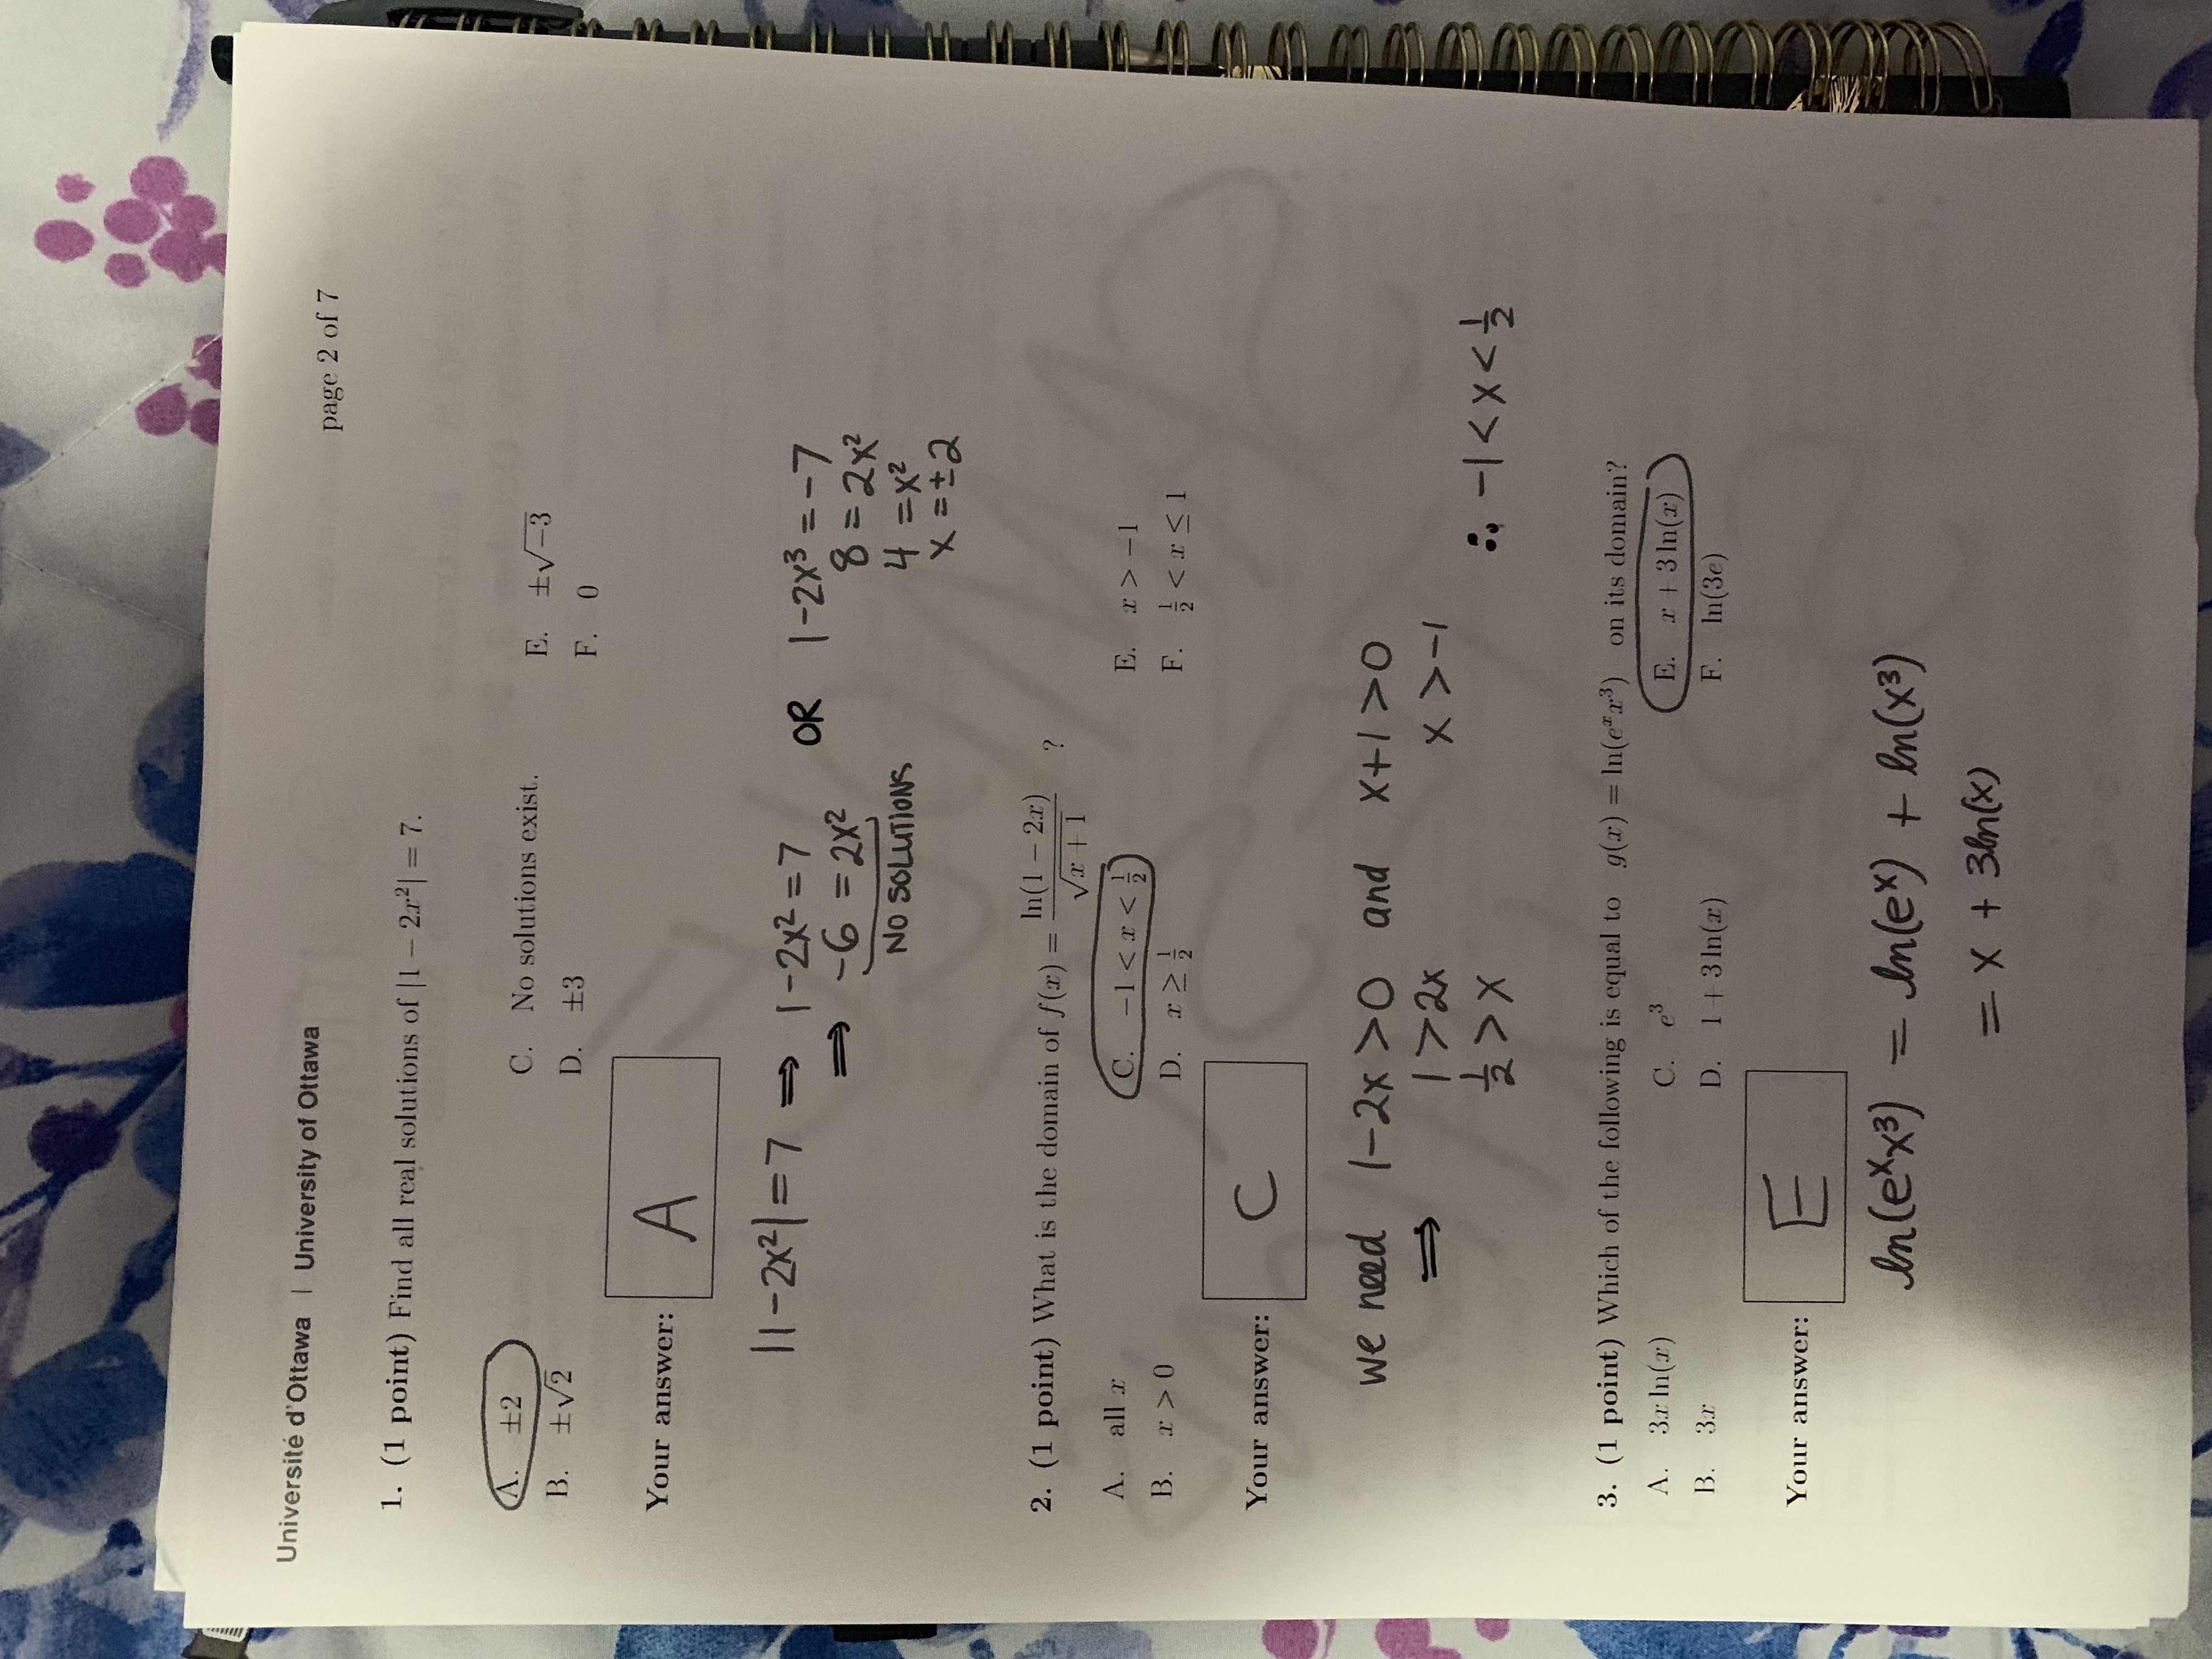 Université d'Ottawa | University of Ottawa
page 2 of 7
1. (1 point) Find all real solutions of |1 − 2x²| = 7.
A. ±2
C. No solutions exist.
E. ±√−3
B. ±√2
D. ±3
F. 0
Your answer: A
|1-2x²| = 7 ⇒ 1-2x² = 7 OR 1-2x³ = -7
⇒ -6 = 2x² 8 = 2x²
NO SOLUTIONS 4 = x²
x = ±2
2. (1 point) What is the domain of f(x) = ln(1 − 2x)/√(x + 1) ?
A. all x
C. −1 < x < 1/2
E. x > −1
B. x > 0
D. x ≥ 1/2
F. 1/2 < x ≤ 1
Your answer: C
we need 1-2x > 0 and x+1 > 0
⇒ 1 > 2x x > -1
1/2 > x ∴ -1 < x < 1/2
3. (1 point) Which of the following is equal to g(x) = ln(eˣx³) on its domain?
A. 3x ln(x)
C. e³
E. x + 3 ln(x)
B. 3x
D. 1 + 3 ln(x)
F. ln(3e)
Your answer: E
ln(eˣx³) = ln(eˣ) + ln(x³)
= x + 3ln(x)